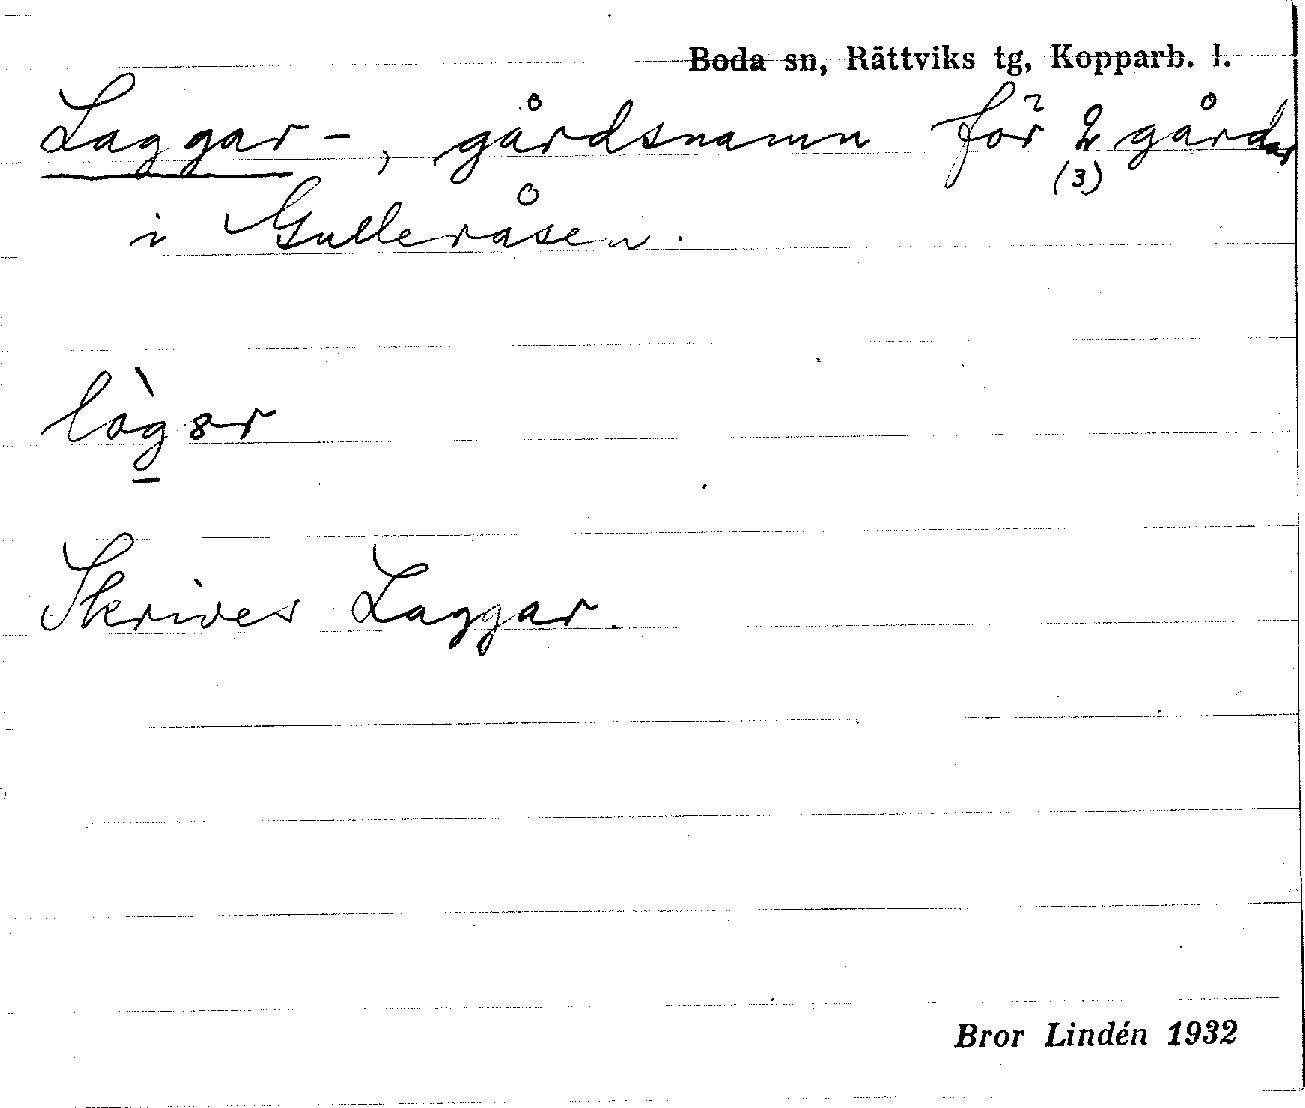 Boda sn, Rättviks tg, Kopparb. l.
Laggar-, gårdsnamn för 2 gårdar
(3)
i Gulleråsen.
Skrives Laggar.
Bror Lindén 1932